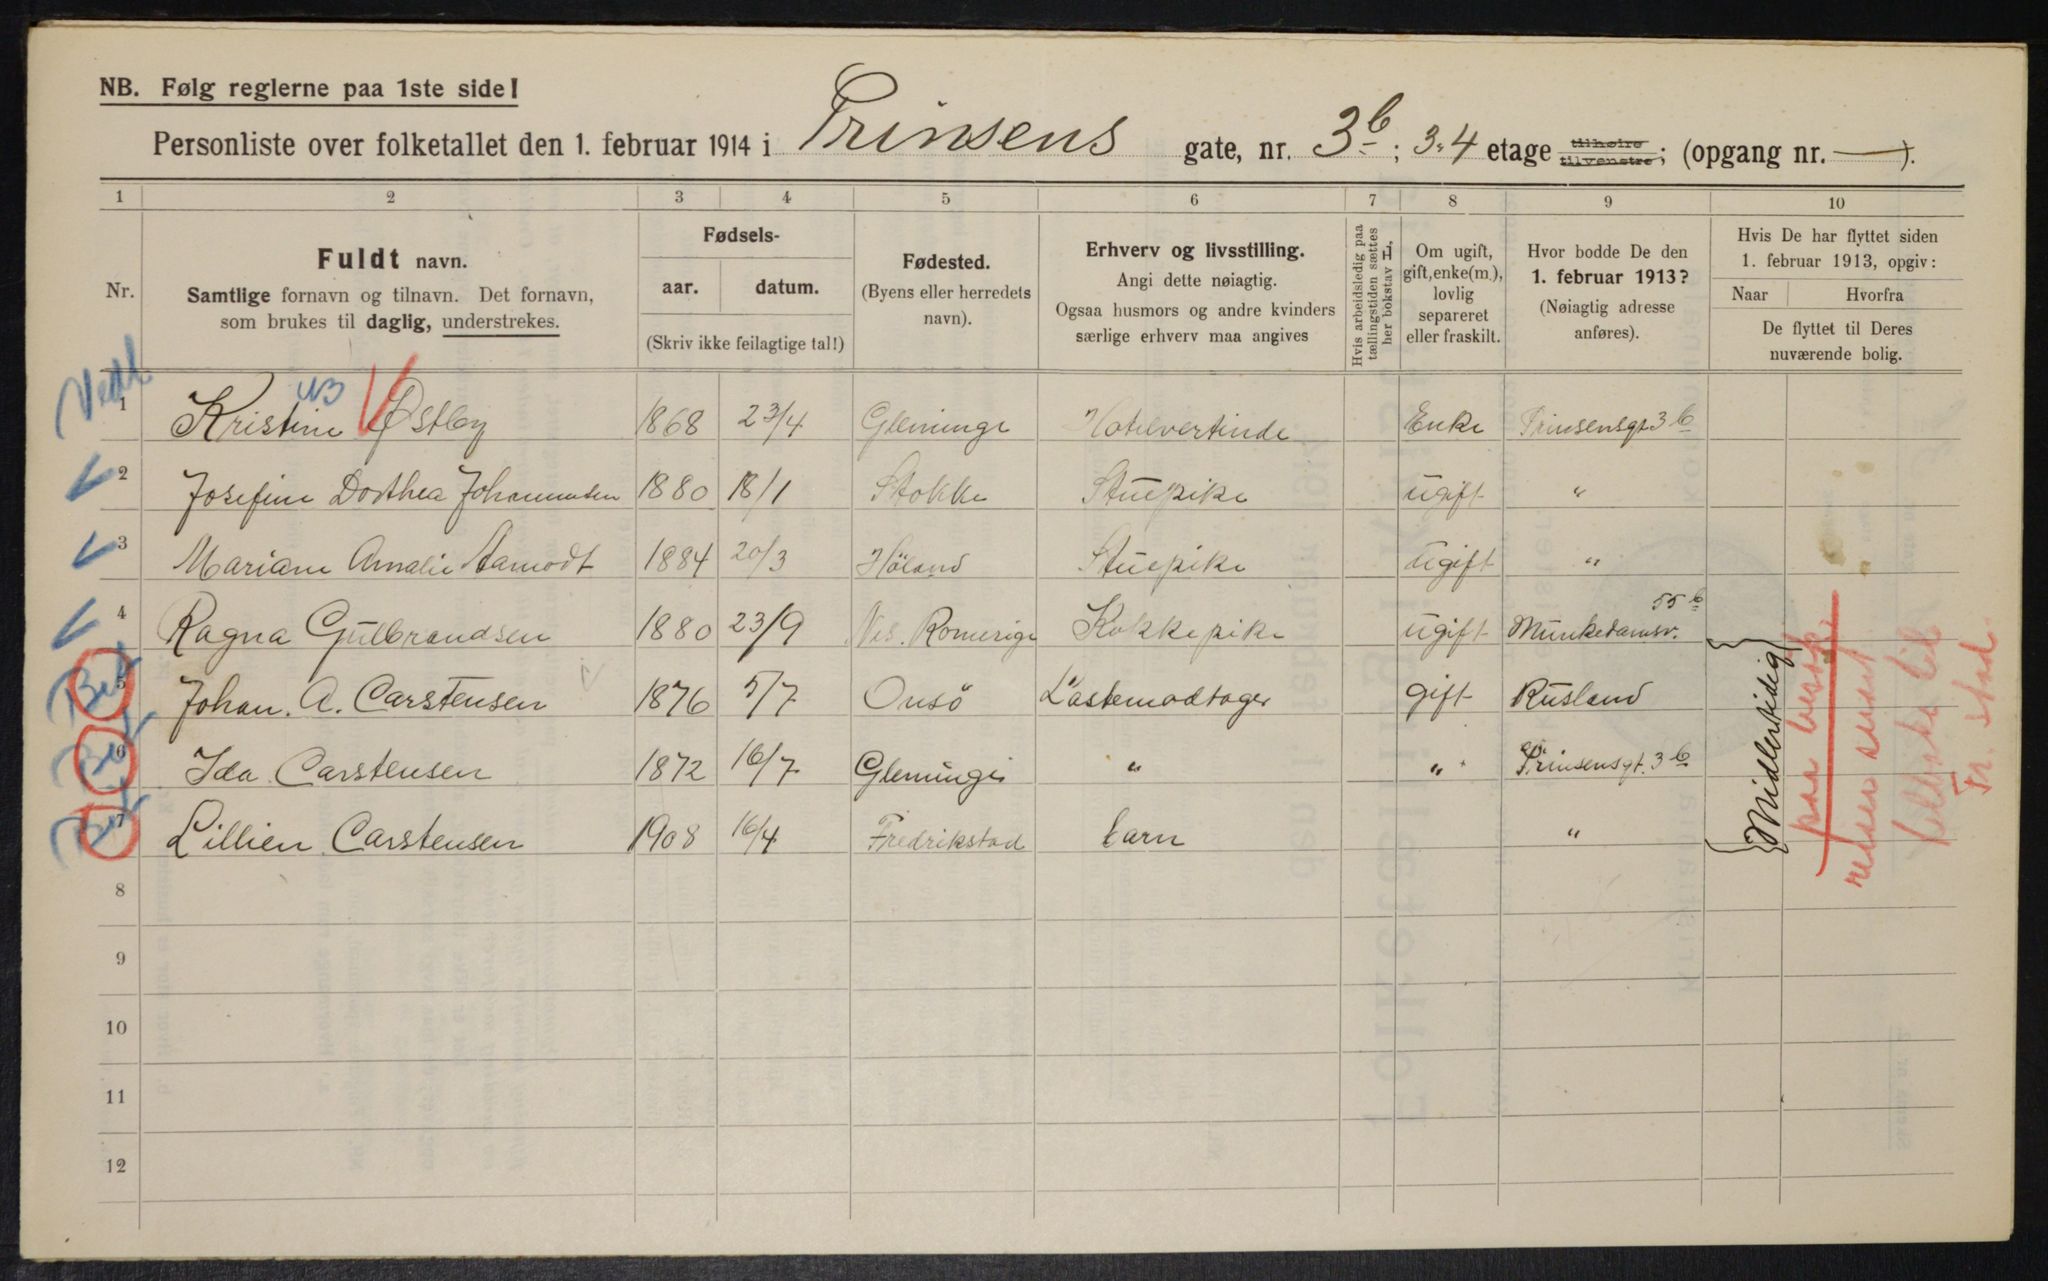 NB. Følg reglerne paa 1ste side!
Personliste over folketallet den 1. februar 1914 i Prinsens gate, nr. 3b; 3.4 etage tilhøire tilvenstre; (opgang nr. —).
1 2 3 4 5 6 7 8 9 10
Nr.
Fuldt navn.
Samtlige fornavn og tilnavn. Det fornavn,
som brukes til daglig, understrekes.
Fødsels-
aar. datum.
(Skriv ikke feilagtige tal!)
Fødested.
(Byens eller herredets
navn).
Erhverv og livsstilling.
Angi dette nøiagtig.
Ogsaa husmors og andre kvinders
særlige erhverv maa angives
Hvis arbeidsledig paa
tællingstiden sættes
her bokstav L.
Om ugift,
gift, enke(m.),
lovlig
separeret
eller fraskilt.
Hvor bodde De den
1. februar 1913?
(Nøiagtig adresse
anføres).
Hvis De har flyttet siden
1. februar 1913, opgiv:
Naar Hvorfra
De flyttet til Deres
nuværende bolig.
1 Kristine Østby 1868 23/4 Gleminge Hotelvertinde Enke Prinsensgt 3b
2 Josefine Dorthea Johannesen 1880 18/1 Stokke Stuepike ugift "
3 Mariane Amalie Aamodt 1884 20/3 Höland Stuepike ugift "
4 Ragna Gulbrandsen 1880 23/9 Nes. Romerige Kokkepike ugift Munkedamsv. 55b
5 Johan. A. Carstensen 1876 5/7 Onsö Lastemodtager gift Rusland
6 Ida Carstensen 1872 16/7 Gleminge " " Prinsensgt. 3b
7 Lillien Carstensen 1908 16/4 Fredrikstad barn "
Midlertidig
paa besøk
reiser snart
tilbake til
Fr. stad.
8
9
10
11
12